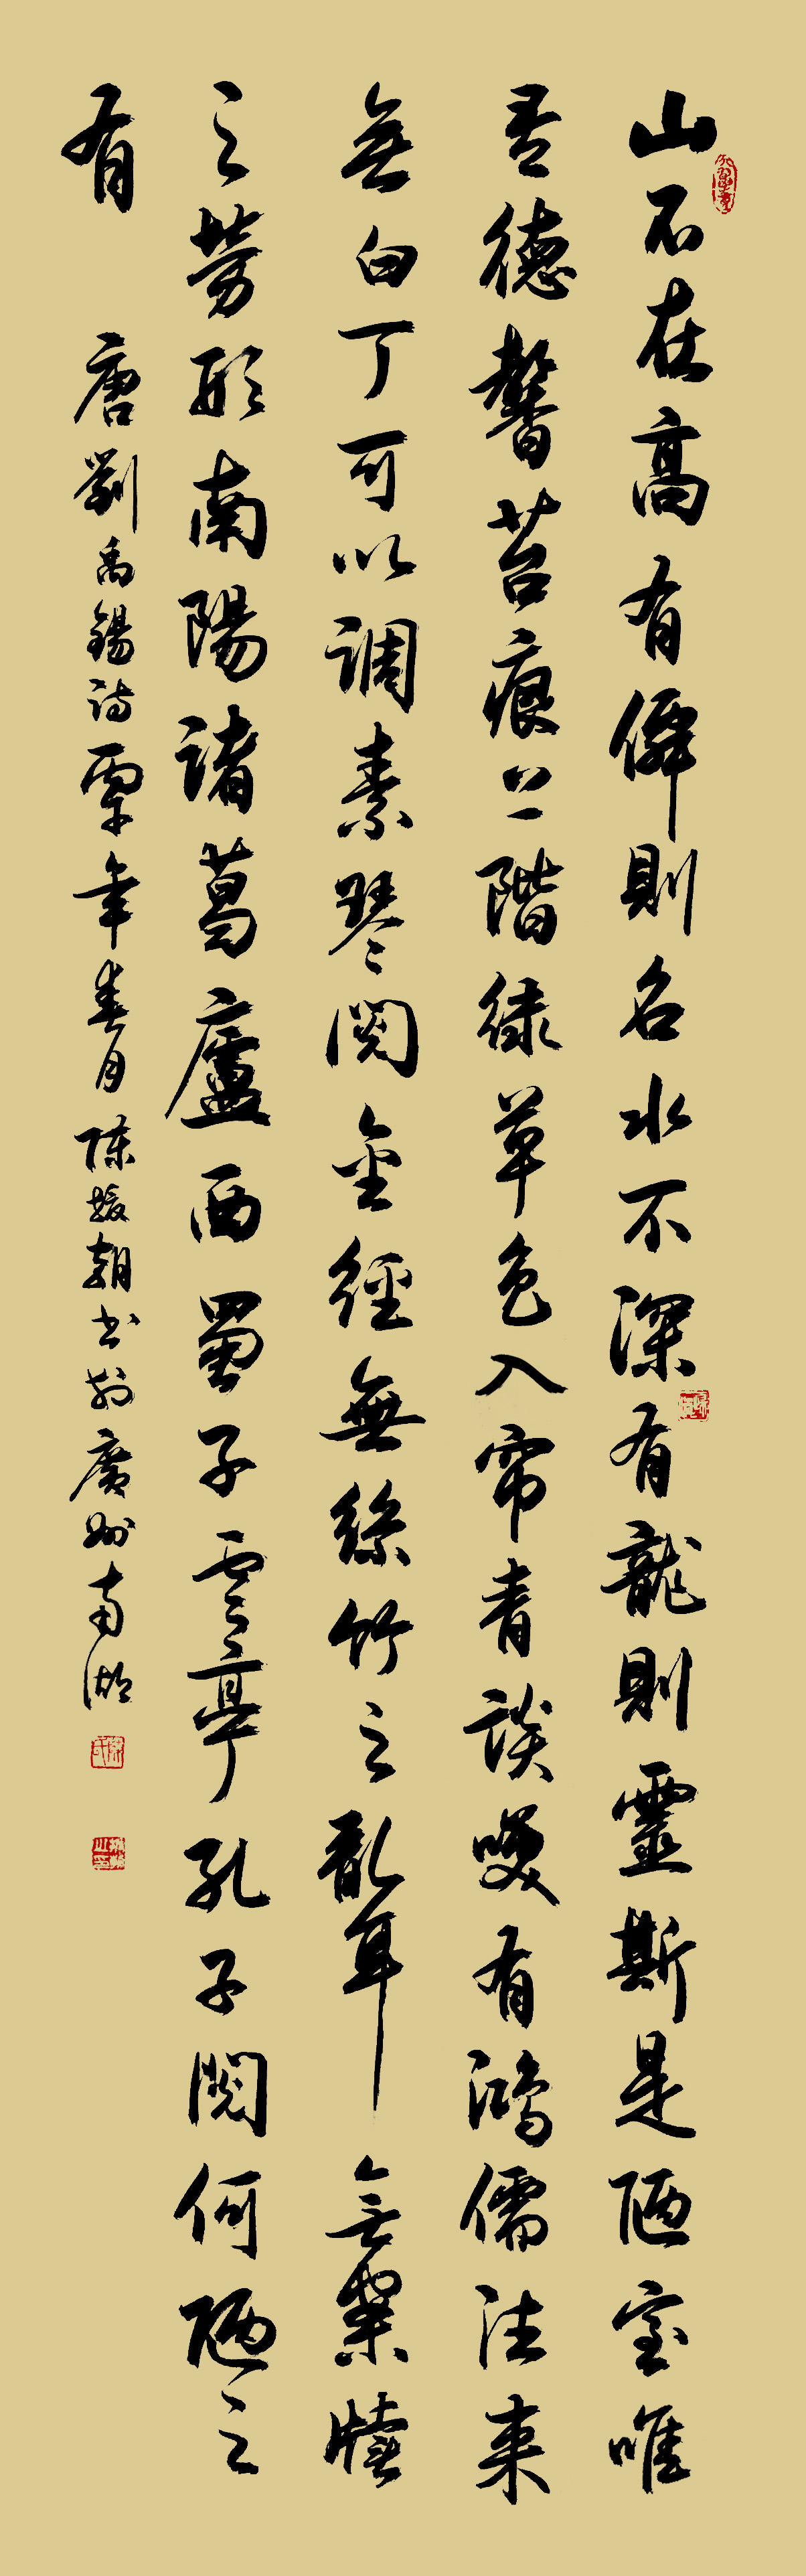 山不在高有僊則名水不深有龍則靈斯是陋室唯
吾德馨苔痕上階緑草色入帘青談咲有鴻儒往来
無白丁可以調素琴閲金經無絲竹之亂耳無案牘
之勞形南陽諸葛廬西蜀子雲亭孔子閲何陋之
有 唐劉禹錫詩年春月陳援朝書於廣州南湖